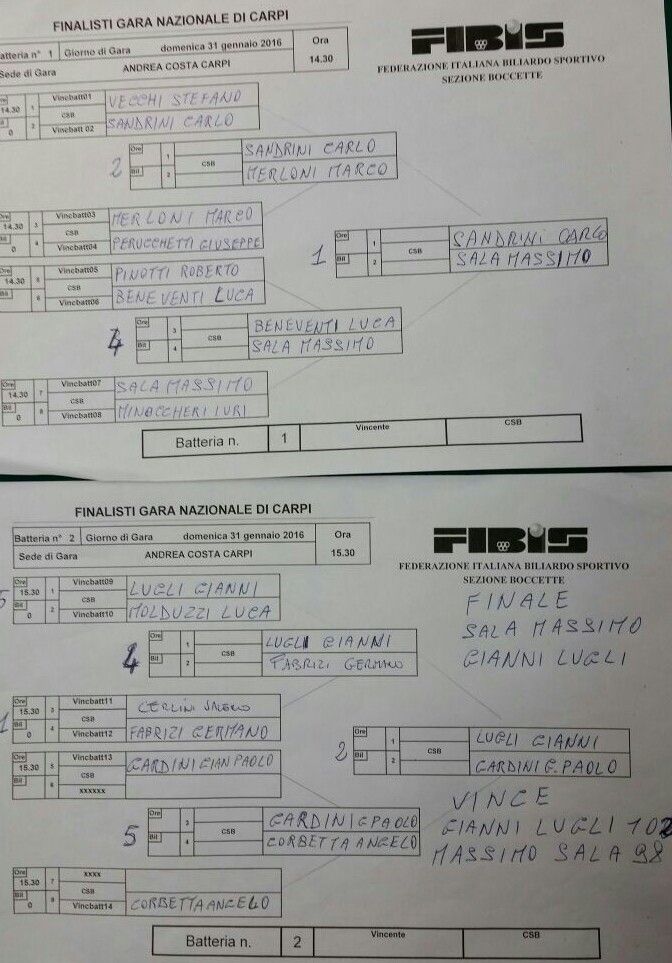 FINALISTI GARA NAZIONALE DI CARPI
Batteria n° 1 Giorno di Gara domenica 31 gennaio 2016 Ora
Sede di Gara ANDREA COSTA CARPI 14.30
FIBIS
FEDERAZIONE ITALIANA BILIARDO SPORTIVO
SEZIONE BOCCETTE
Ore Vincbatt01 VECCHI STEFANO
14.30 1 CSB
Bil 0 2 Vincbatt 02 SANDRINI CARLO
2 Ore 1 CSB SANDRINI CARLO
Bil 2 MERLONI MARCO
Ore 14.30 3 Vincbatt03 MERLONI MARCO
CSB
Bil 0 4 Vincbatt04 PERUCCHETTI GIUSEPPE
1 Ore 1 CSB SANDRINI CARLO
Bil 2 SALA MASSIMO
Ore 14.30 5 Vincbatt05 PINOTTI ROBERTO
CSB
Bil 6 Vincbatt06 BENEVENTI LUCA
4 Ore 3 CSB BENEVENTI LUCA
Bil 4 SALA MASSIMO
Ore 14.30 7 Vincbatt07 SALA MASSIMO
CSB
Bil 0 8 Vincbatt08 MINACCHERI IURI
Batteria n. 1 Vincente CSB
FINALISTI GARA NAZIONALE DI CARPI
Batteria n° 2 Giorno di Gara domenica 31 gennaio 2016 Ora
Sede di Gara ANDREA COSTA CARPI 15.30
FIBIS
FEDERAZIONE ITALIANA BILIARDO SPORTIVO
SEZIONE BOCCETTE
5 Ore 15.30 1 Vincbatt09 LUGLI GIANNI
CSB
Bil 0 2 Vincbatt10 MOLDUZZI LUCA
FINALE
SALA MASSIMO
GIANNI LUGLI
4 Ore 1 CSB LUGLI GIANNI
Bil 2 FABRIZI GERMANO
1 Ore 15.30 3 Vincbatt11 CERLINI
CSB
Bil 0 4 Vincbatt12 FABRIZI GERMANO
2 Ore 1 CSB LUGLI GIANNI
Bil 2 GARDINI G. PAOLO
Ore 15.30 5 Vincbatt13 GARDINI GIAN PAOLO
CSB
Bil 6 xxxxxx
VINCE
GIANNI LUGLI 102
MASSIMO SALA 98
5 Ore 3 CSB GARDINI G PAOLO
Bil 4 CORBETTA ANGELO
Ore 15.30 7 xxxx
CSB
Bil 0 8 Vincbatt14 CORBETTA ANGELO
Batteria n. 2 Vincente CSB